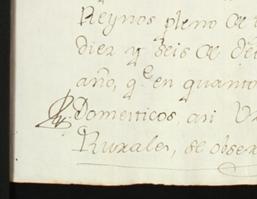 Reynos pleno de
diez y seis de de
año, q.e en quanto
Domesticos, asi Ur
Rurales, se obser